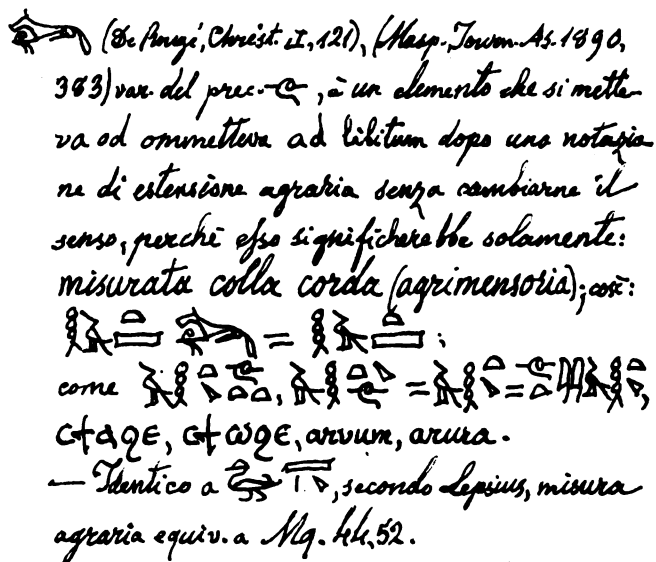 (De Rougé, Chrest. II, 121), (Masp. Journ. As. 1890,
383) var. del prec. , è un elemento che si mette-
va od ommetteva ad libitum dopo una notazio
ne di estensione agraria senza cambiarne il
senso, perchè esso significherebbe solamente:
misurata colla corda (agrimensoria); così:
= ;
come , = = ,
ⲥϯⲁϩⲉ, ⲥϯⲱϩⲉ, arvum, arura.
— Identico a , secondo Lepsius, misura
agraria equiv. a Mq. 44,52.